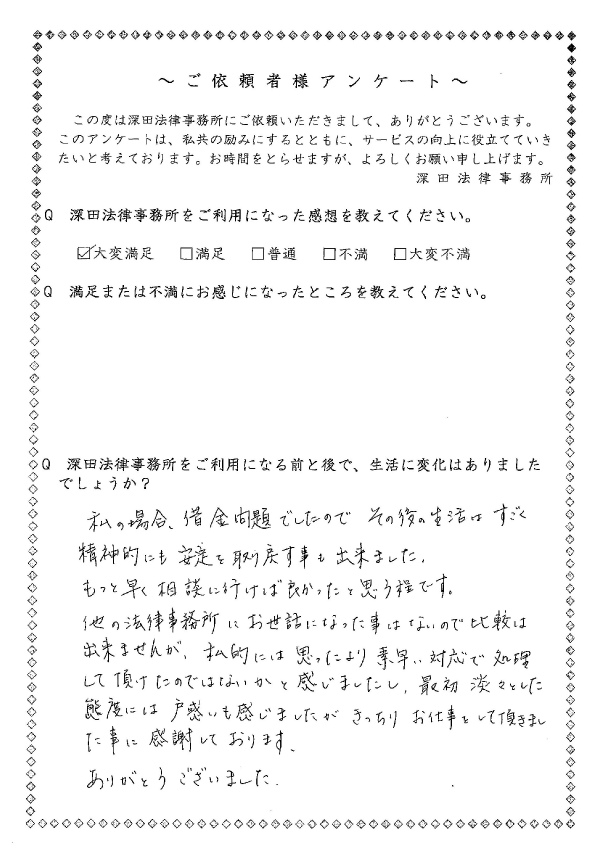 ～ご依頼者様アンケート～
この度は深田法律事務所にご依頼いただきまして、ありがとうございます。
このアンケートは、私共の励みにするとともに、サービスの向上に役立てていき
たいと考えております。お時間をとらせますが、よろしくお願い申し上げます。
深田法律事務所
Q 深田法律事務所をご利用になった感想を教えてください。
☑大変満足 □満足 □普通 □不満 □大変不満
Q 満足または不満にお感じになったところを教えてください。
Q 深田法律事務所をご利用になる前と後で、生活に変化はありました
でしょうか？
私の場合、借金問題でしたので その後の生活は すごく
精神的にも 安定を取り戻す事も出来ました。
もっと早く相談に行けば良かったと思う程です。
他の法律事務所にお世話になった事はないので比較は
出来ませんが、私的には思ったより素早い対応で処理
して頂けたのではないかと感じましたし、最初淡々とした
態度には戸惑いも感じましたが きっちり お仕事をして頂きまし
た事に感謝しております。
ありがとうございました.